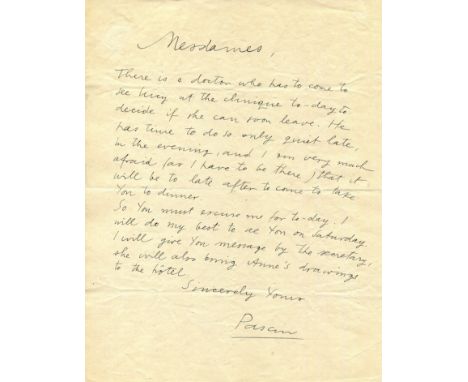 Mesdames,
There is a doctor who has to come to
see Lucy at the clinique to-day to
decide if she can soon leave. He
has time to do so only quiet late,
in the evening, and I am very much
afraid (as I have to be there) that it
will be to late after to come to take
You to dinner.
So You must excuse me for to-day. I
will do my best to see You on Saturday.
I will give You message by the secretary,
she will also bring Anne's drawings
to the hôtel
Sincerely Yours
Pascin